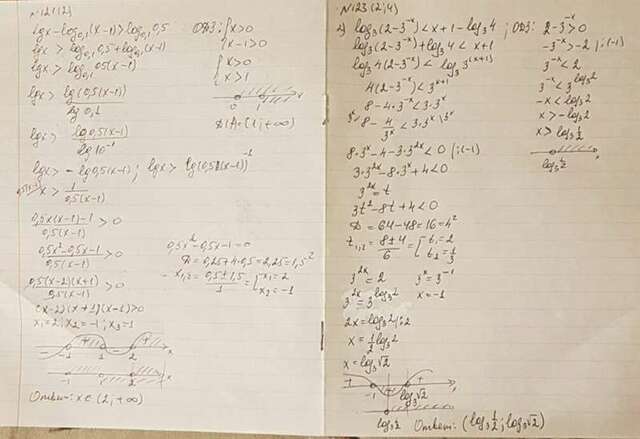 №121(2)
lgx - log₀,₁(x-1) > log₀,₁ 0,5   ОДЗ: { x>0
x-1>0
lgx > log₀,₁ 0,5 + log₀,₁(x-1)
lgx > log₀,₁ 0,5(x-1)   { x>0
x>1
lgx > lg(0,5(x-1)) / lg 0,1
0 1 x
D(A)=(1;+∞)
lgx > lg 0,5(x-1) / lg 10⁻¹
lgx > -lg 0,5(x-1); lgx > lg(0,5(x-1))⁻¹
x > 1 / 0,5(x-1)
0,5x(x-1)-1 / 0,5(x-1) > 0
0,5x²-0,5x-1 / 0,5(x-1) > 0   0,5x²-0,5x-1=0
D=0,25+4·0,5=2,25=1,5²
0,5(x-2)(x+1) / 0,5(x-1) > 0   x₁,₂ = 0,5±1,5 / 1 = [ x₁=2
x₂=-1
(x-2)(x+1)(x-1)>0
x₁=2; x₂=-1; x₃=1
- + - + x
-1 1 2
-1 1 2 x
Ответ: x∈(2;+∞)
№123(2;4)
log₃(2-3⁻ˣ) < x+1-log₃4 ; ОДЗ: 2-3⁻ˣ>0
log₃(2-3⁻ˣ)+log₃4 < x+1   -3⁻ˣ>-2 |:(-1)
log₃4(2-3⁻ˣ) < log₃3⁽ˣ⁺¹⁾   3⁻ˣ<2
4(2-3⁻ˣ) < 3ˣ⁺¹   3⁻ˣ<3^log₃2
8-4·3⁻ˣ < 3·3ˣ   -x<log₃2
8 - 4/3ˣ < 3·3ˣ   x>-log₃2
x>log₃ 1/2
8·3ˣ-4-3·3²ˣ<0 |:(-1)
log₃ 1/2 x
3·3²ˣ-8·3ˣ+4<0
3²ˣ=t
3t²-8t+4<0
D=64-48=16=4²
t₁,₂ = 8±4 / 6 = [ t₁=2
3²ˣ=2   3ˣ=3⁻¹
3²ˣ=3^log₃2   x=-1
2x=log₃2 |:2
x=1/2 log₃2
x=log₃√2
+ - + x
-1 log₃√2
Ответ: (log₃ 1/2; log₃√2)